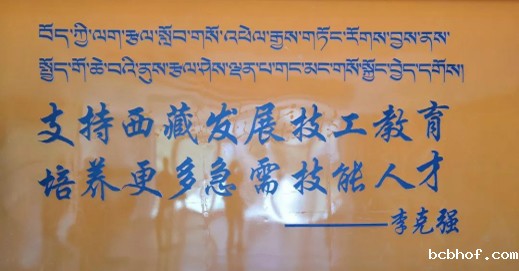 བོད་ཀྱི་ལག་རྩལ་སློབ་གསོ་འཕེལ་རྒྱས་གཏོང་རོགས་བྱས་ནས་
སྤྱོད་གོ་ཆེ་བའི་ནུས་རྩལ་ཤེས་ལྡན་པ་གང་མང་གསོ་སྐྱོང་བྱེད་དགོས།
支持西藏发展技工教育
培养更多急需技能人才
——李克强
bcbhof.com